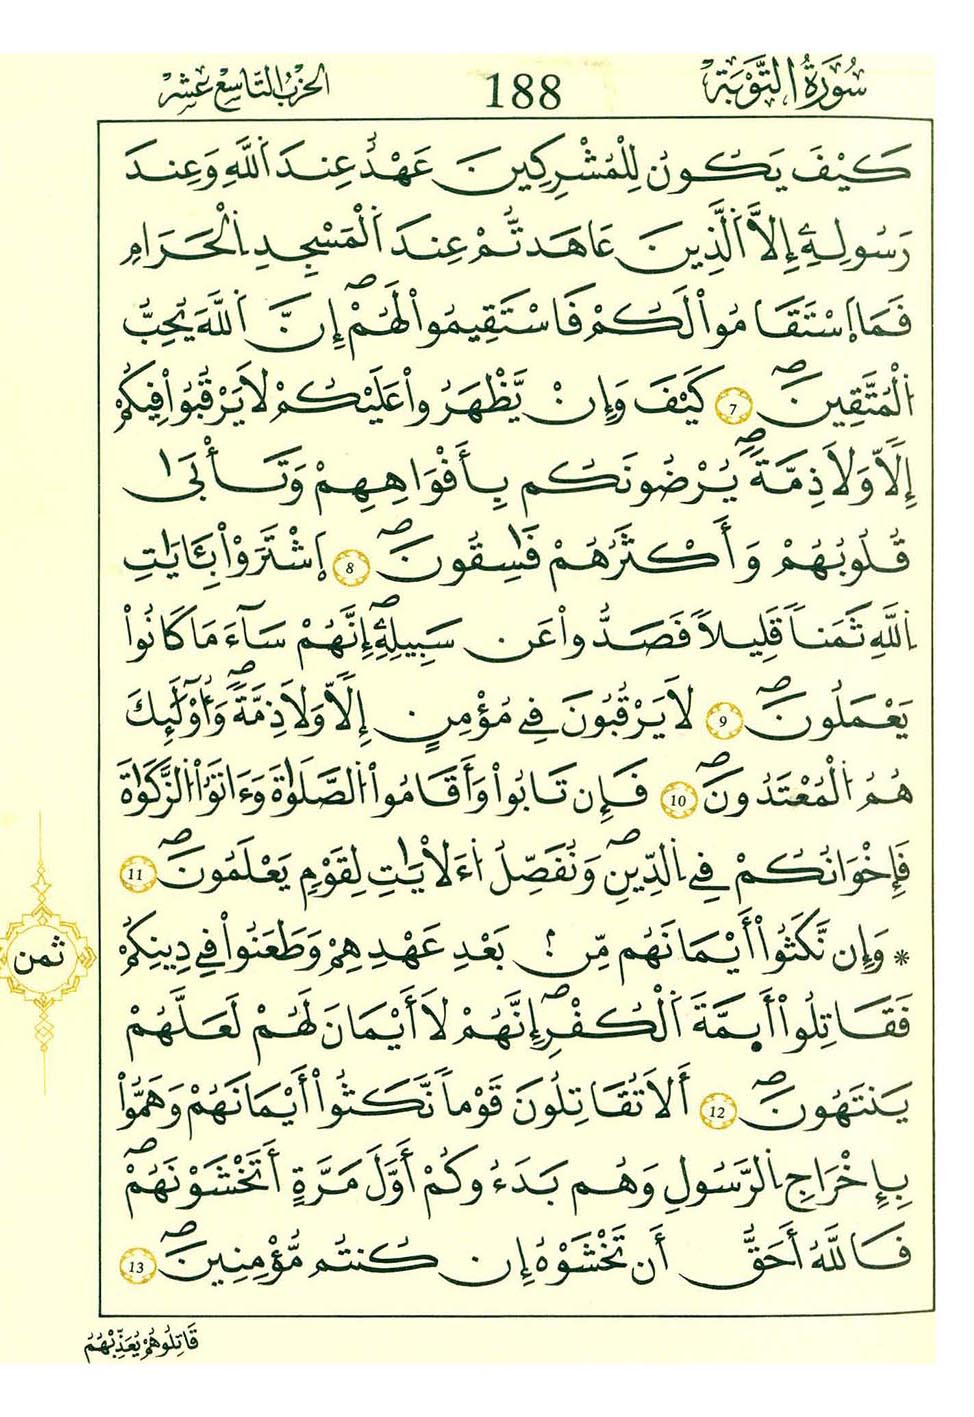 سُورَةُ التَّوْبَة
188
الحزب التاسع عشر
كَيْفَ يَكُونُ لِلْمُشْرِكِينَ عَهْدٌ عِندَ اَللَّهِ وَعِندَ
رَسُولِهِۦٓ إِلَّا اَلذِينَ عَٰهَدتُّمْ عِندَ اَلْمَسْجِدِ اِلْحَرَامِ
فَمَا اَسْتَقَٰمُواْ لَكُمْ فَاسْتَقِيمُواْ لَهُمْۖ إِنَّ اَللَّهَ يُحِبُّ
اُلْمُتَّقِينَۖ 7 كَيْفَ وَإِنْ يَّظْهَرُواْ عَلَيْكُمْ لَا يَرْقُبُواْ فِيكُمُ
إِلّاً وَلَا ذِمَّةًۖ يُرْضُونَكُم بِأَفْوَاهِهِمْ وَتَأْبَىٰ
قُلُوبُهُمْ وَأَكْثَرُهُمْ فَٰسِقُونَۖ 8 اَشْتَرَوْاْ بِـَٔايَٰتِ
اِللَّهِ ثَمَناً قَلِيلاً فَصَدُّواْ عَن سَبِيلِهِۦٓۖ إِنَّهُمْ سَآءَ مَا كَانُواْ
يَعْمَلُونَۖ 9 لَا يَرْقُبُونَ فِے مُؤْمِنٍ إِلّاً وَلَا ذِمَّةًۖ وَأُوْلَٰٓئِكَ
هُمُ اُلْمُعْتَدُونَۖ 10 فَإِن تَابُواْ وَأَقَامُواْ اُلصَّلَوٰةَ وَءَاتَوُاْ اُلزَّكَوٰةَ
فَإِخْوَٰنُكُمْ فِے اِلدِّينِۖ وَنُفَصِّلُ اُلَايَٰتِ لِقَوْمٍ يَعْلَمُونَۖ 11
* وَإِن نَّكَثُواْ أَيْمَٰنَهُم مِّنۢ بَعْدِ عَهْدِهِمْ وَطَعَنُواْ فِے دِينِكُمْ
فَقَٰتِلُواْ أَيِمَّةَ اَلْكُفْرِۖ إِنَّهُمْ لَا أَيْمَٰنَ لَهُمْ لَعَلَّهُمْ
يَنتَهُونَۖ 12 أَلَا تُقَٰتِلُونَ قَوْماً نَّكَثُواْ أَيْمَٰنَهُمْ وَهَمُّواْ
بِإِخْرَاجِ اِلرَّسُولِ وَهُم بَدَءُوكُمْ أَوَّلَ مَرَّةٍ أَتَخْشَوْنَهُمْۖ
فَاللَّهُ أَحَقُّ أَن تَخْشَوْهُ إِن كُنتُم مُّؤْمِنِينَۖ 13
ثمن
قَاتِلُوهُمْ يُعَذِّبْهُمُ